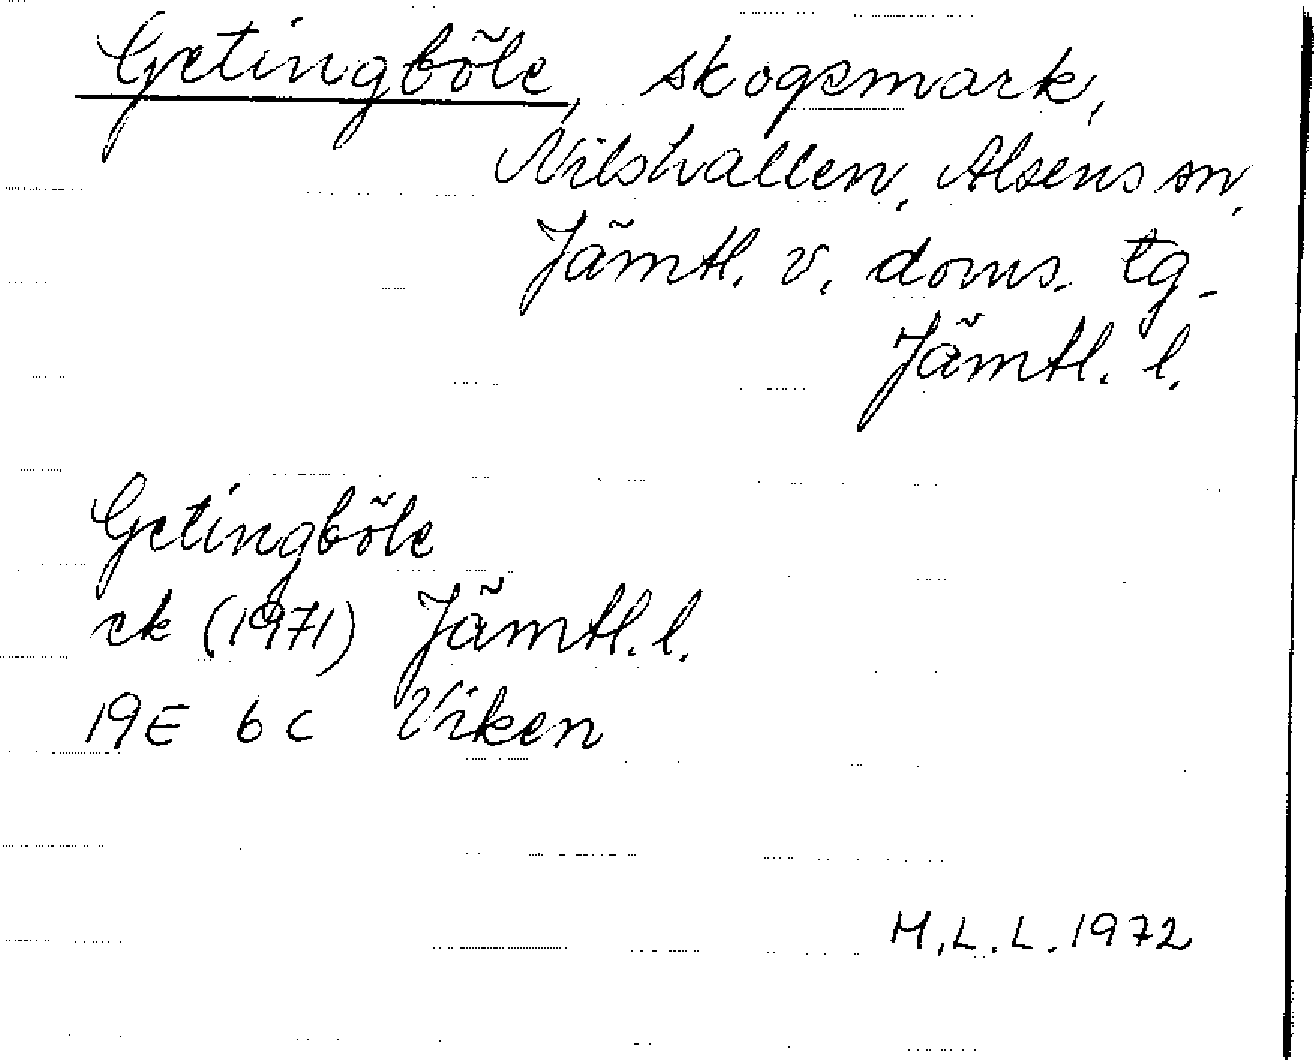 Getingböle, skogsmark,
Nilshallen, Alsens sn,
Jämtl. v. doms. tg.
Jämtl. l.
Getingböle
ek (1971) Jämtl. l.
19E 6c Viken
M.L.L. 1972